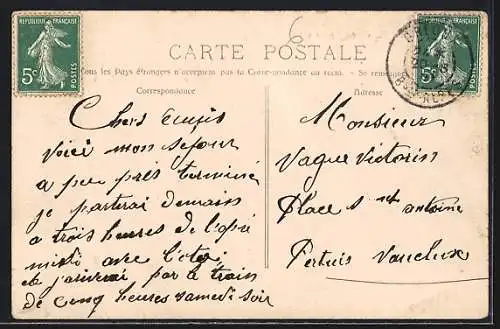 REPUBLIQUE FRANÇAISE
5c POSTES
6
REPUBLIQUE FRANÇAISE
5c POSTES
CARTE POSTALE
Tous les Pays étrangers n'acceptent pas la Correspondance au recto. - Se renseigner
Correspondance
Adresse
Chers amis
Voici mon sejour
a peu près terminé
je partirai demain
a trois heures de l'apré
midi avec
j'arriverai par le train
de cinq heures samedi soir
Monsieur
Vague Victorin
Place st antoine
Pertuis Vaucluse